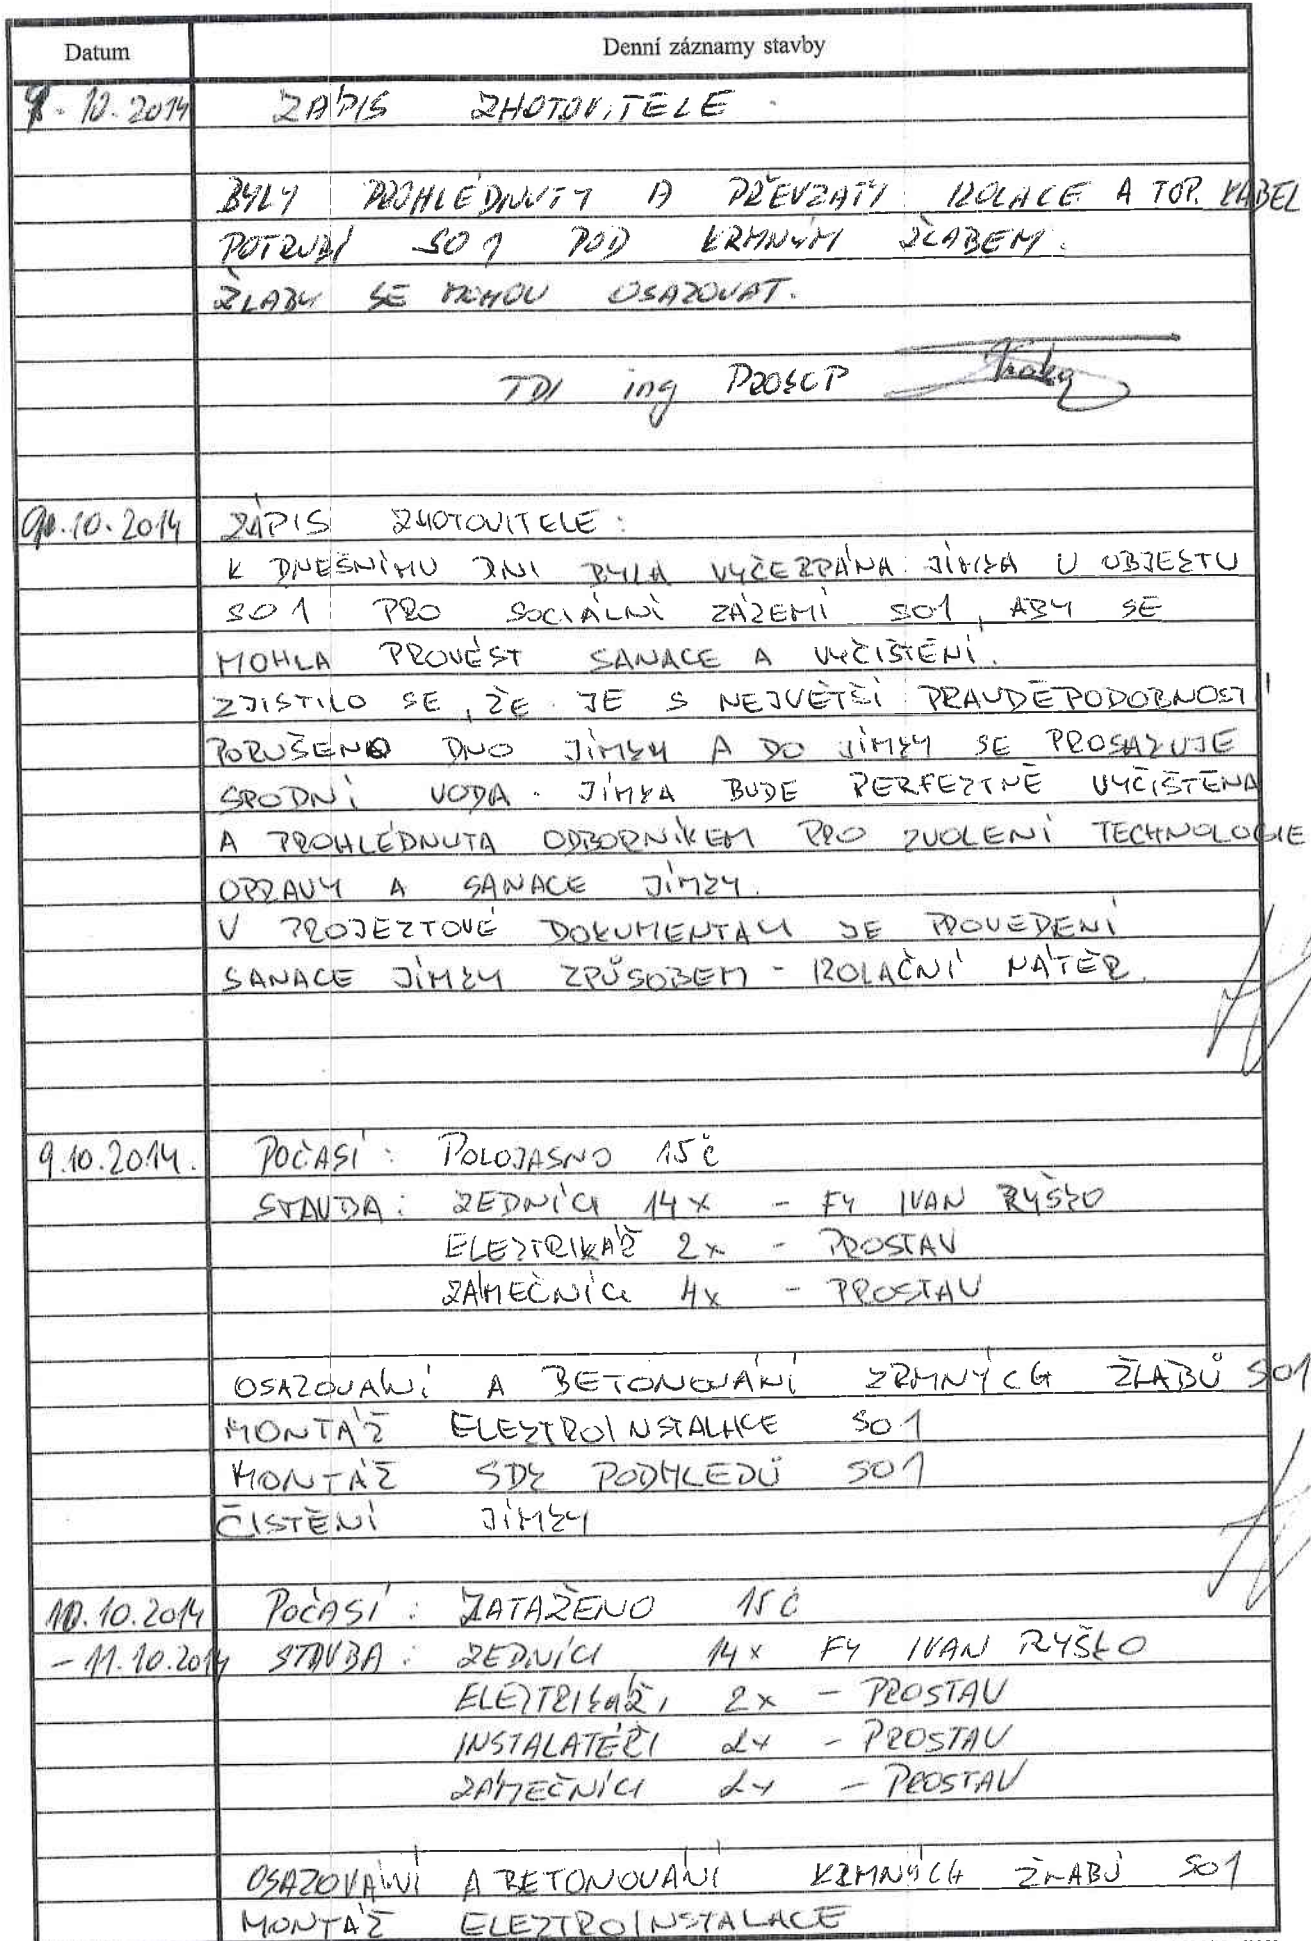 Datum Denní záznamy stavby
10.2014 ZÁPIS ZHOTOVITELE
BYLY PROHLÉDNUTY A PŘEVZATY IZOLACE A TOP. KABEL
POTRUBÍ SO1 POD KRMNÝM ŽLABEM.
ŽLABY SE MOHOU OSAZOVAT.
TDI ing
10.2014 ZÁPIS ZHOTOVITELE:
K DNEŠNÍMU DNI BYLA VYČERPÁNA JÍMKA U OBJEKTU
SO1 PRO SOCIÁLNÍ ZÁZEMÍ SO1, ABY SE
MOHLA PROVÉST SANACE A VYČIŠTĚNÍ.
ZJISTILO SE, ŽE JE S NEJVĚTŠÍ PRAVDĚPODOBNOSTÍ
PORUŠENO DNO JÍMKY A DO JÍMKY SE PROSAKUJE
SPODNÍ VODA. JÍMKA BUDE PERFEKTNĚ VYČIŠTĚNA
A PROHLÉDNUTA ODBORNÍKEM PRO ZVOLENÍ TECHNOLOGIE
OPRAVY A SANACE JÍMKY.
V PROJEKTOVÉ DOKUMENTACI JE PROVEDENÍ
SANACE JÍMKY ZPŮSOBEM - IZOLAČNÍ NÁTĚR.
9.10.2014. POČASÍ: POLOJASNO 15°C
STAVBA: ZEDNÍCI 14x - FY IVAN RYŠKO
ELEKTRIKÁŘ 2x - PROSTAV
ZÁMEČNÍCI 4x - PROSTAV
OSAZOVÁNÍ A BETONOVÁNÍ KRMNÝCH ŽLABŮ SO1
MONTÁŽ ELEKTROINSTALACE SO1
MONTÁŽ SDK PODHLEDŮ SO1
ČISTĚNÍ JÍMKY
10.10.2014 POČASÍ: ZATAŽENO 15°C
- 11.10.2014 STAVBA: ZEDNÍCI 14x FY IVAN RYŠKO
ELEKTRIKÁŘI 2x - PROSTAV
INSTALATÉŘI 2x - PROSTAV
ZÁMEČNÍCI 2x - PROSTAV
OSAZOVÁNÍ A BETONOVÁNÍ KRMNÝCH ŽLABŮ SO1
MONTÁŽ ELEKTROINSTALACE